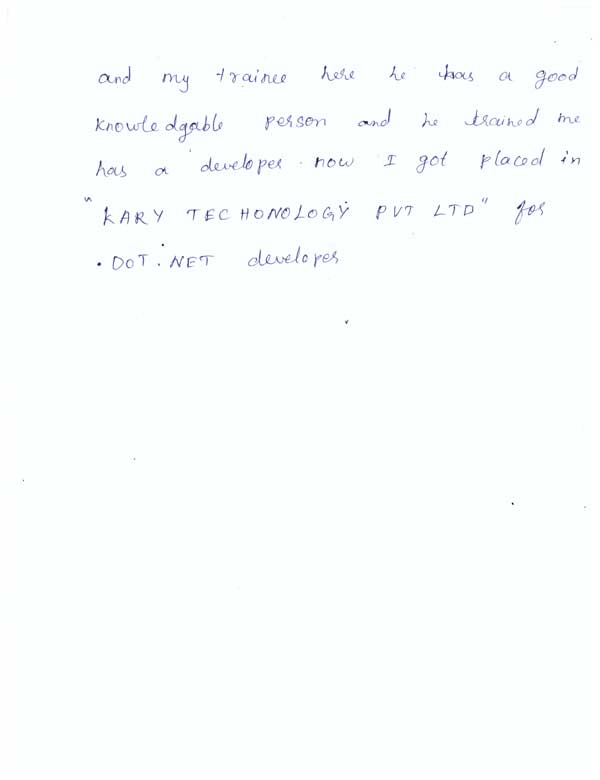 and my trainee here he has a good
knowledgable person and he trained me
has a developer. now I got placed in
"KARY TECHONOLOGY PVT LTD" for
. DOT. NET developer